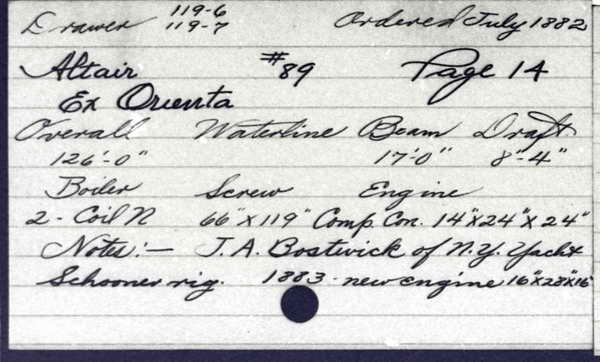 Drawer 119-6
119-7 Ordered July 1882
Altair #89 Page 14
Ex Orienta
Overall Waterline Beam Draft
126'-0" 17'-0" 8'-4"
Boiler Screw Engine
2 - Coil N 66" X 119" Comp. Con. 14" X 24" X 24"
Notes:- J.A. Bostwick of N.Y. Yacht
Schooner rig. 1883 - new engine 16"x28"x16"